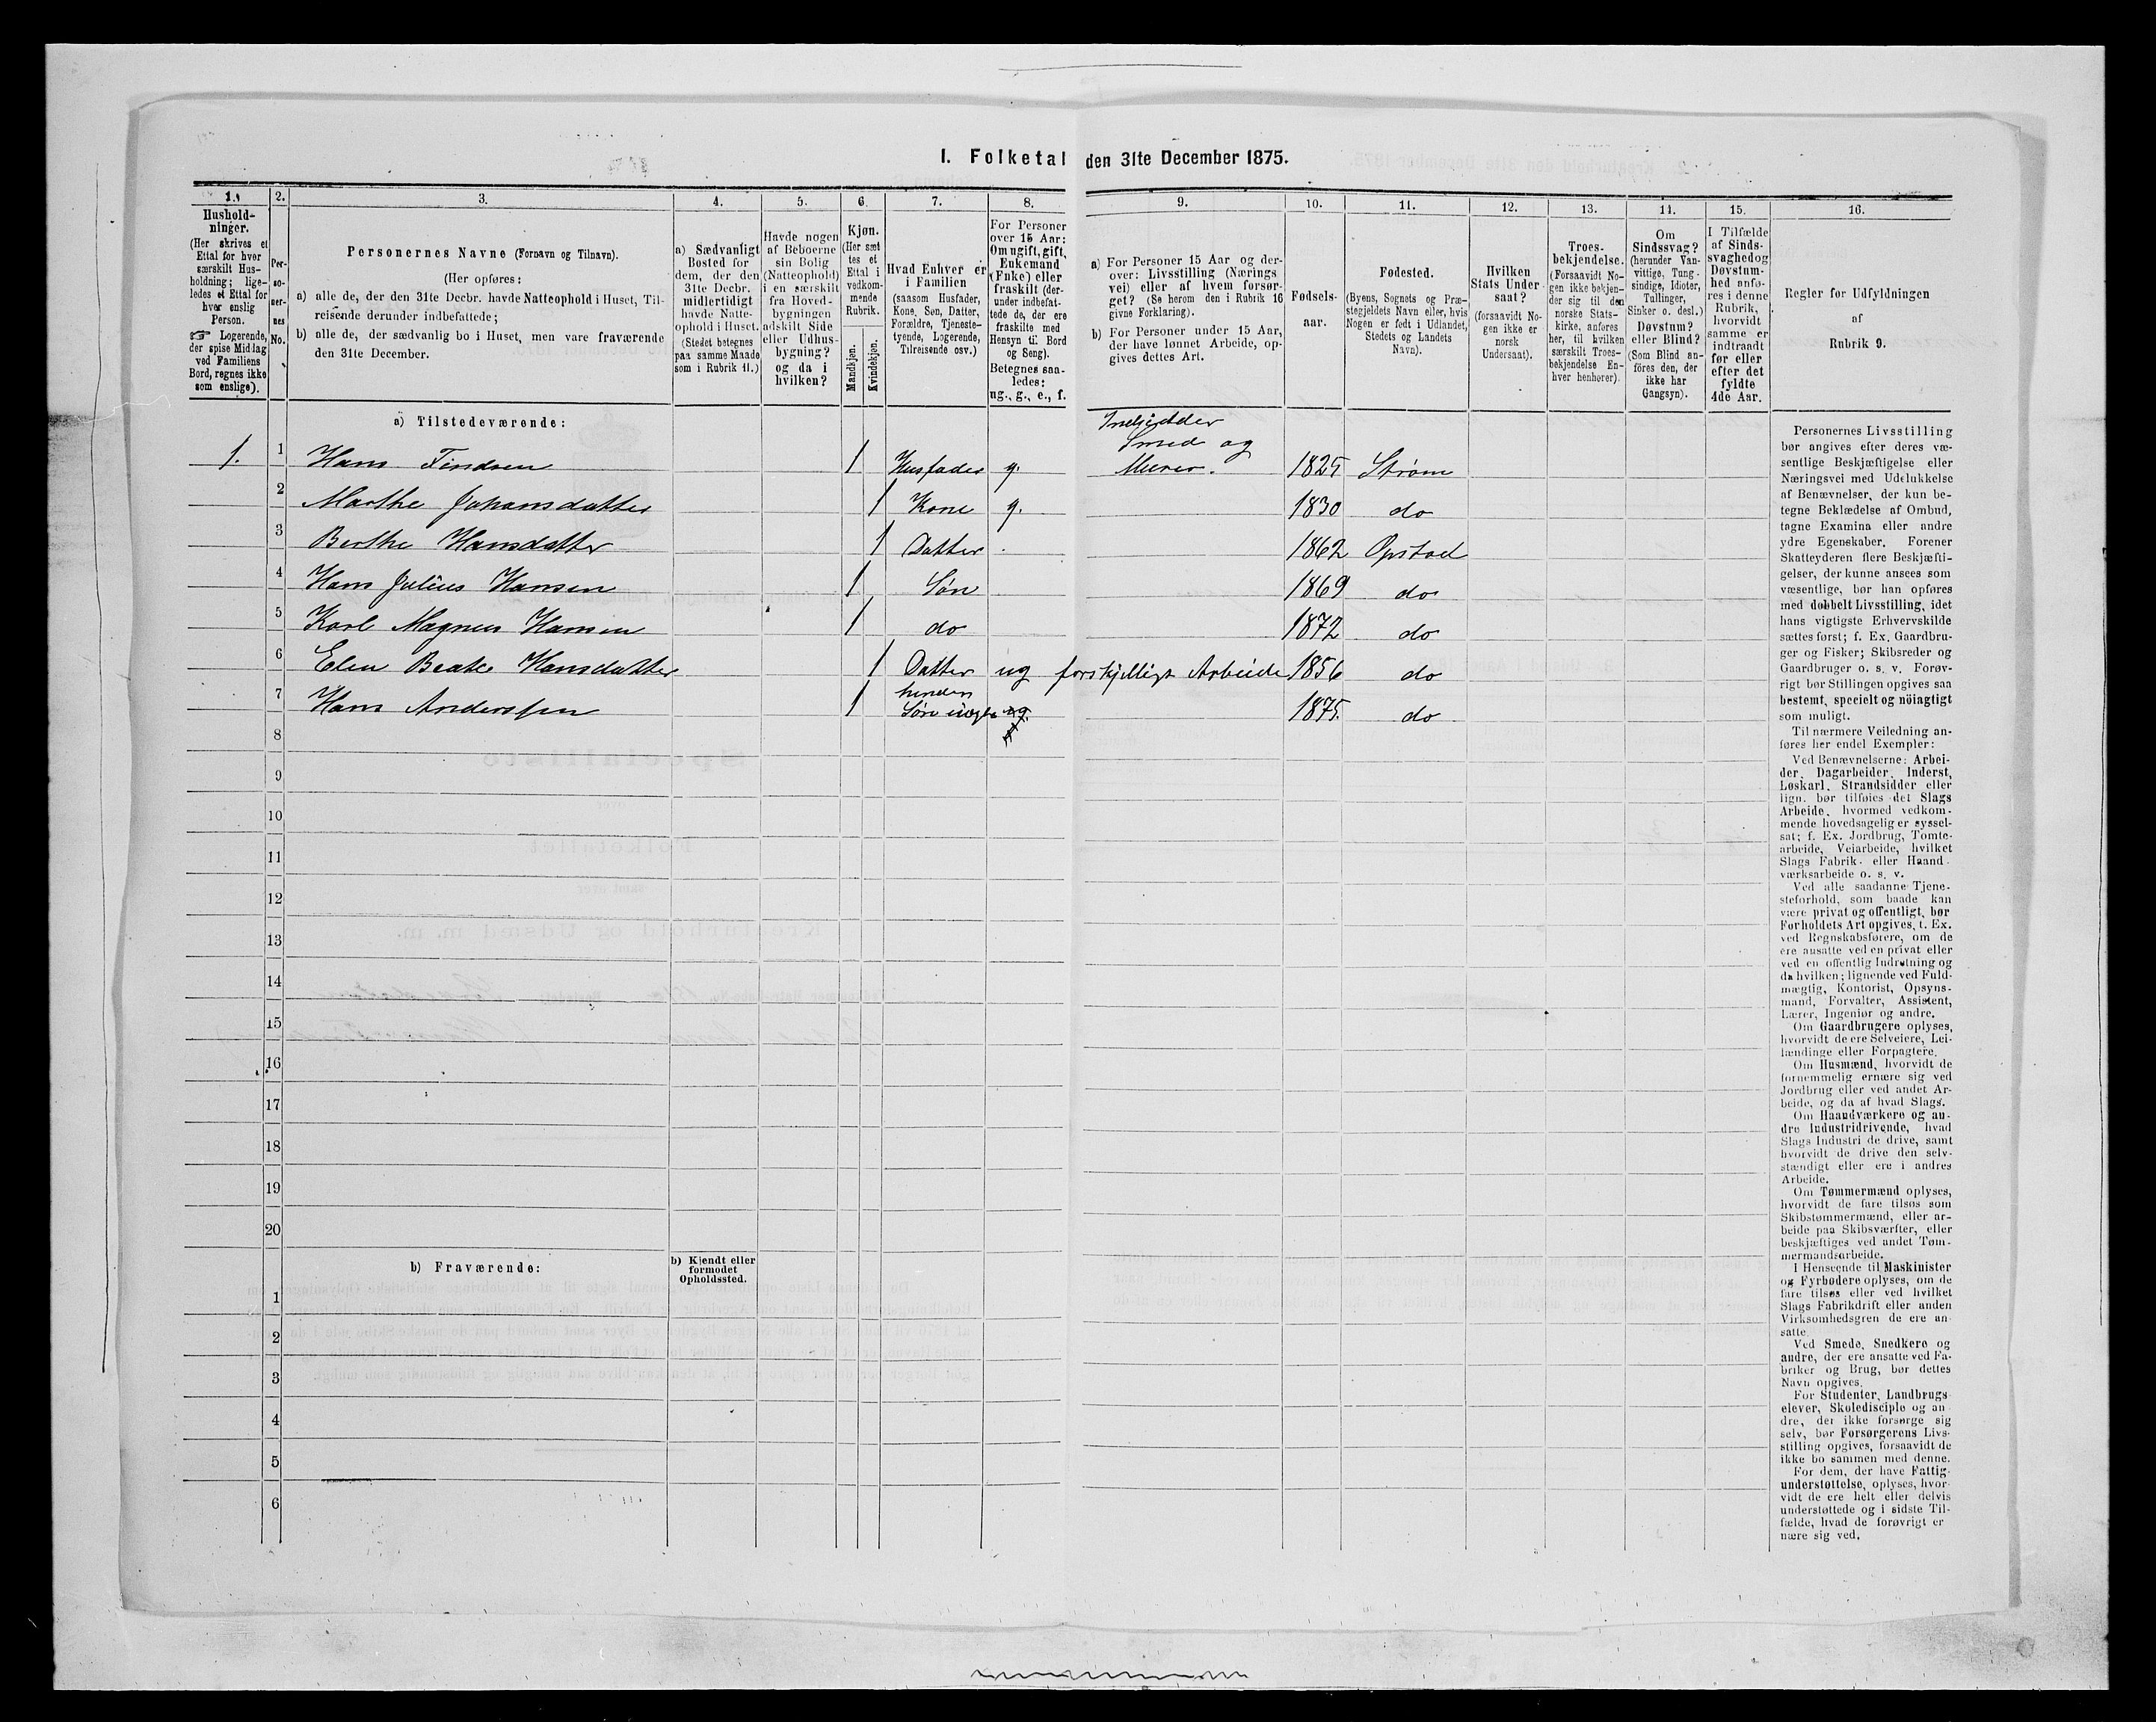 I. Folketal den 31te December 1875.
1.
2.
3.
4.
5.
6.
7.
8.
9.
10.
11.
12.
13.
14.
15.
16.
Hushold-
ninger.
(Her skrives et
Ettal for hver
særskilt Hus-
holdning; lige-
ledes et Ettal for
hver enslig
Person.
☞ Logerende,
der spise Middag
ved Familiens
Bord, regnes ikke
som enslige).
Per-
so-
ner-
nes
No.
Personernes Navne (Fornavn og Tilnavn).
(Her opføres:
a) alle de, der den 31te Decbr. havde Natteophold i Huset, Til-
reisende derunder indbefattede;
b) alle de, der sædvanlig bo i Huset, men vare fraværende
den 31te December.
a) Sædvanligt
Bosted for
dem, der den
31te Decbr.
midlertidigt
havde Natte-
ophold i Huset.
(Stedet betegnes
paa samme Maade
som i Rubrik 11.)
Havde nogen
af Beboerne
sin Bolig
(Natteophold)
i en særskilt
fra Hoved-
bygningen
adskilt Side
eller Udhus-
bygning?
og da i
hvilken?
Kjøn.
(Her sæt
tes et
Ettal i
vedkom-
mende
Rubrik.
Mandkjøn.
Kvindekjøn.
Hvad Enhver er
i Familien
(saasom Husfader,
Kone, Søn, Datter,
Forældre, Tjeneste-
tyende, Logerende,
Tilreisende osv.)
For Personer
over 15 Aar:
Om ugift, gift,
Enkemand
(Enke) eller
fraskilt (der-
under indbefat-
tede de, der ere
fraskilte med
Hensyn til Bord
og Seng).
Betegnes saa-
ledes:
ug., g., e., f.
a) For Personer 15 Aar og der-
over: Livsstilling (Nærings
vei) eller af hvem forsør-
get? (Se herom den i Rubrik 16
givne Forklaring).
b) For Personer under 15 Aar,
der have lønnet Arbeide, op-
gives dettes Art.
Fødsels-
aar.
Fødested.
(Byens, Sognets og Præ-
stegjeldets Navn eller, hvis
Nogen er født i Udlandet,
Stedets og Landets
Navn).
Hvilken
Stats Under
saat?
(forsaavidt No-
gen ikke er
norsk
Undersaat).
Troes-
bekjendelse.
(Forsaavidt No-
gen ikke bekjen-
der sig til den
norske Stats-
kirke, anføres
her, til hvilken
særskilt Troes-
bekjendelse En-
hver henhører).
Om
Sindssvag?
(herunder Van-
vittige, Tung-
sindige, Idioter,
Tullinger,
Sinker o. desl.)
Døvstum?
eller Blind?
(Som Blind an-
föres den, der
ikke har
Gangsyn).
I Tilfælde
af Sinds-
svaghed og
Døvstum-
hed anfø-
res i denne
Rubrik,
hvorvidt
samme er
indtrandt
før eller
efter det
fyldte
4de Aar.
Regler for Udfyldningen
af
Rubrik 9.
a) Tilstedeværende:
1. 1 Hans Findsen 1 Husfader g. Indsidder Smed og Murer. 1825 Strøm
2 Marthe Johansdatter 1 Kone g. 1830 do
3 Berthe Hansdatter 1 Datter 1862 Opstad
4 Hans Julius Hansen 1 Søn 1869 do
5 Karl Magnus Hansen 1 do 1872 do
6 Elen Beate Hansdatter 1 Datter ug forskjelligt Arbeide 1856 do
7 Hans Anderssen 1 hendes Søn uægte ug. 1875. do
8
9
10
11
12
13
14
15
16
17
18
19
20
b) Fraværende:
b) Kjendt eller
formodet
Opholdssted.
1
2
3
4
5
6
Personernes Livsstilling
bør angives efter deres væ-
sentlige Beskjæftigelse eller
Næringsvei med Udelukkelse
af Benævnelser, der kun be-
tegne Beklædelse af Ombud,
tagne Examina eller andre
ydre Egenskaber. Forener
Skatteyderen flere Beskjæfti-
gelser, der kunne ansees som
væsentlige, bør han opføres
med dobbelt Livsstilling, idet
hans vigtigste Erhvervskilde
sættes først; f. Ex. Gaardbru-
ger og Fisker; Skibsreder og
Gaardbruger o. s. v. Forøv-
rigt bør Stillingen opgives saa
bestemt, specielt og nöiagtigt
som muligt.
Til nærmere Veiledning an-
føres her endel Exempler:
Ved Benævnelserne: Arbei-
der, Dagarbeider, Inderst,
Løskarl, Strandsidder eller
lign. bør tilføies det Slags
Arbeide, hvormed vedkom-
mende hovedsagelig er syssel-
sat; f. Ex. Jordbrug, Tomte-
arbeide, Veiarbeide, hvilket
Slags Fabrik- eller Haand-
værksarbeide o. s. v.
Ved alle saadanne Tjene-
steforhold, som baade kan
være privat og offentligt, bør
Forholdets Art opgives, t. Ex.
ved Regnskabsførere, om de
ere ansatte ved en privat eller
ved en offentlig Indretning og
da hvilken; lignende ved Fuld-
mægtig, Kontorist, Opsyns-
mand, Forvalter, Assistent,
Lærer, Ingeniør og andre.
Om Gaardbrugere oplyses,
hvorvidt de ere Selveiere, Lei-
lændinge eller Forpagtere.
Om Husmænd, hvorvidt de
fornemmelig ernære sig ved
Jordbrug eller ved andet Ar-
beide, og da af hvad Slags.
Om Haandværkere og an-
dre Industridrivende, hvad
Slags Industri de drive, samt
hvorvidt de drive den selv-
stændigt eller ere i andres
Arbeide.
Om Tømmermænd oplyses,
hvorvidt de fare tilsøs som
Skibstømmermænd, eller ar-
beide paa Skibsværfter, eller
beskjæftiges ved andet Tøm-
mermandsarbeide.
I Henseende til Maskinister
og Fyrbødere oplyses, om de
fare tilsøs eller ved hvilket
Slags Fabrikdrift eller anden
Virksomhedsgren de ere an-
satte.
Ved Smede, Snedkere og
andre, der ere ansatte ved Fa-
briker og Brug, bør dettes
Navn opgives.
For Studenter, Landbrugs
elever, Skoledisciple og an
dre, der ikke forsørge sig
selv, bør Forsørgerens Livs-
stilling opgives, forsaavidt de
ikke bo sammen med denne.
For dem, der have Fattig-
understøttelse, oplyses, hvor-
vidt de ere helt eller delvis
understøttede og i sidste Til-
fælde, hvad de forøvrigt er
nære sig ved.